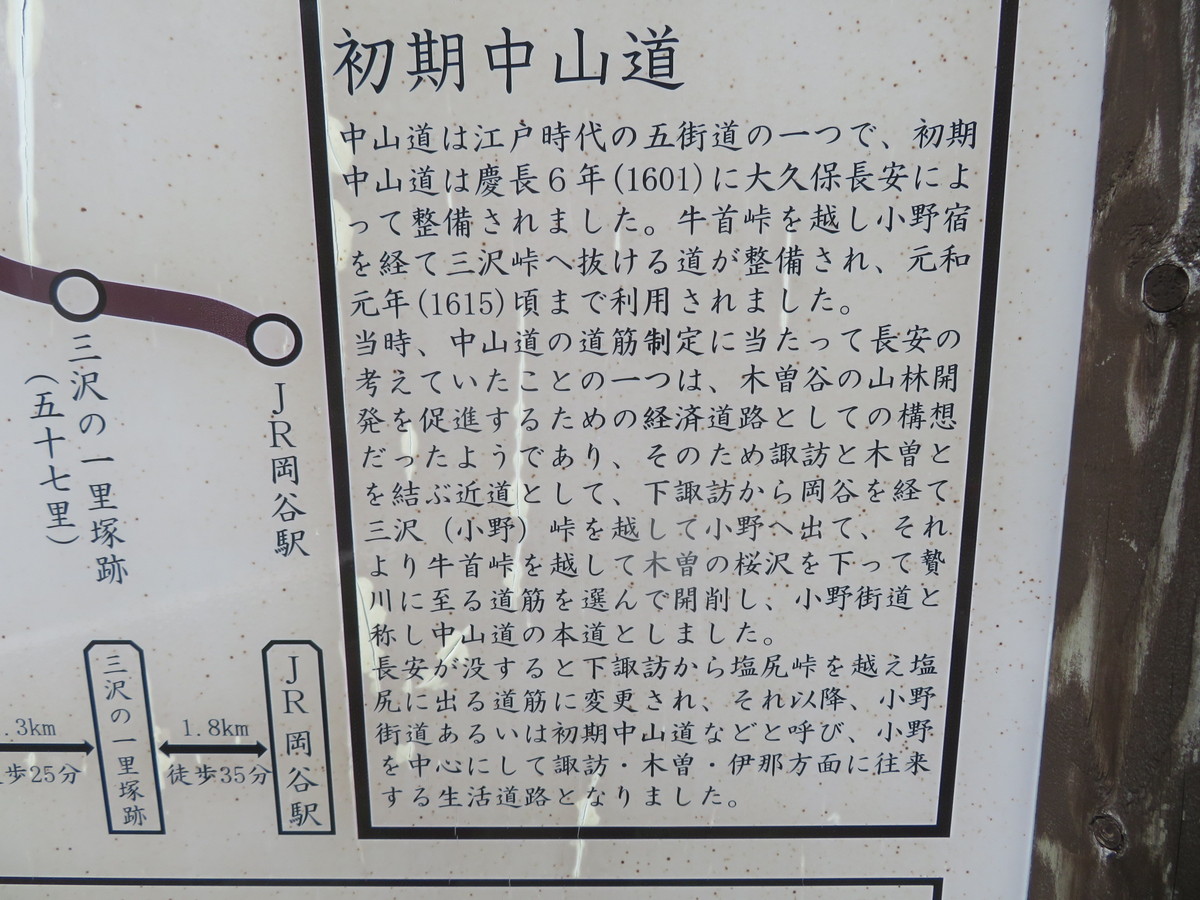 初期中山道
中山道は江戸時代の五街道の一つで、初期
中山道は慶長6年(1601)に大久保長安によ
って整備されました。牛首峠を越し小野宿
を経て三沢峠へ抜ける道が整備され、元和
元年(1615)頃まで利用されました。
当時、中山道の道筋制定に当たって長安の
考えていたことの一つは、木曽谷の山林開
発を促進するための経済道路としての構想
だったようであり、そのため諏訪と木曽と
を結ぶ近道として、下諏訪から岡谷を経て
三沢(小野)峠を越して小野へ出て、それ
より牛首峠を越して木曽の桜沢を下って贄
川に至る道筋を選んで開削し、小野街道と
称し中山道の本道としました。
長安が没すると下諏訪から塩尻峠を越え塩
尻に出る道筋に変更され、それ以降、小野
街道あるいは初期中山道などと呼び、小野
を中心にして諏訪・木曽・伊那方面に往来
する生活道路となりました。
三沢の一里塚跡
(五十七里)
JR岡谷駅
.3km
歩25分
三沢の一里塚跡
1.8km
徒歩35分
JR岡谷駅